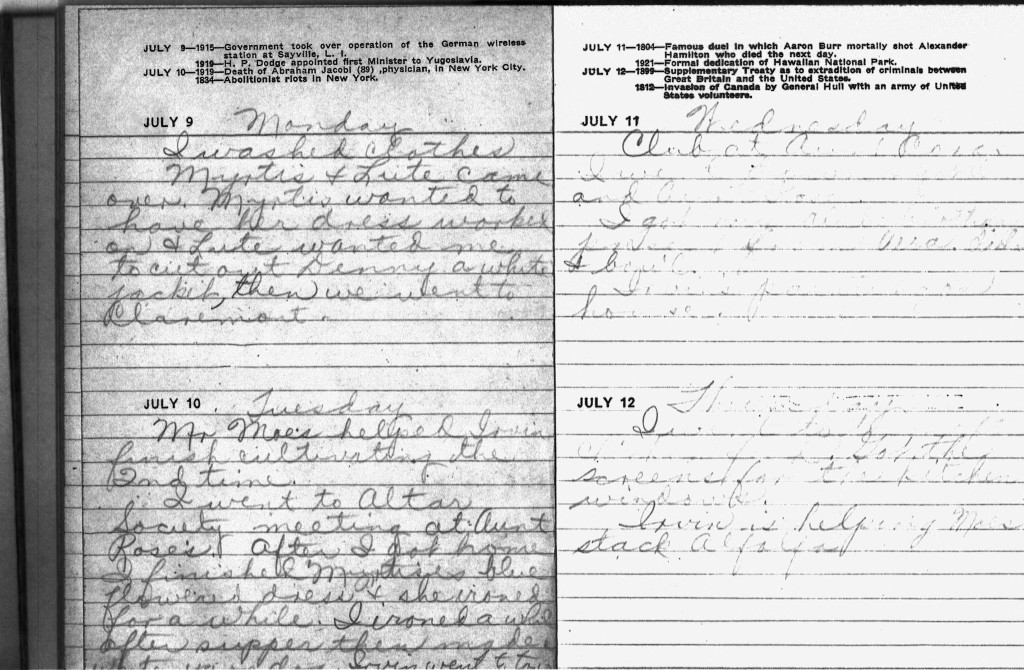 JULY 9—1915—Government took over operation of the German wireless
station at Sayville, L. I.
1919—H. P. Dodge appointed first Minister to Yugoslavia.
JULY 10—1919—Death of Abraham Jacobi (89) ,physician, in New York City.
1834—Abolitionist riots in New York.
JULY 9 Monday
I washed clothes
Myrtis & Lute came
over. Myrtis wanted to
have her dress worked
on & Lute wanted me
to cut out Denny a white
jacket, then we went to
Claremont.
JULY 10. Tuesday
Mr Moes helped Irvin
finish cultivating the
2nd time.
I went to Altar
Society meeting at Aunt
Rose's. After I got home
I finished Myrtises blue
flowered dress & she ironed
for a while. I ironed a while
after supper then made
Irvin went to
JULY 11—1804—Famous duel in which Aaron Burr mortally shot Alexander
Hamilton who died the next day.
1921—Formal dedication of Hawaiian National Park.
JULY 12—1899—Supplementary Treaty as to extradition of criminals between
Great Britain and the United States.
1812—Invasion of Canada by General Hull with an army of United
States volunteers.
JULY 11 Wednesday
Club at Aunt
I
and
I got
Ma did
&
Irvin's
house.
JULY 12 Thursday
I
Got the
screens for the kitchen
windows.
Irvin is helping Moes
stack alfalfa